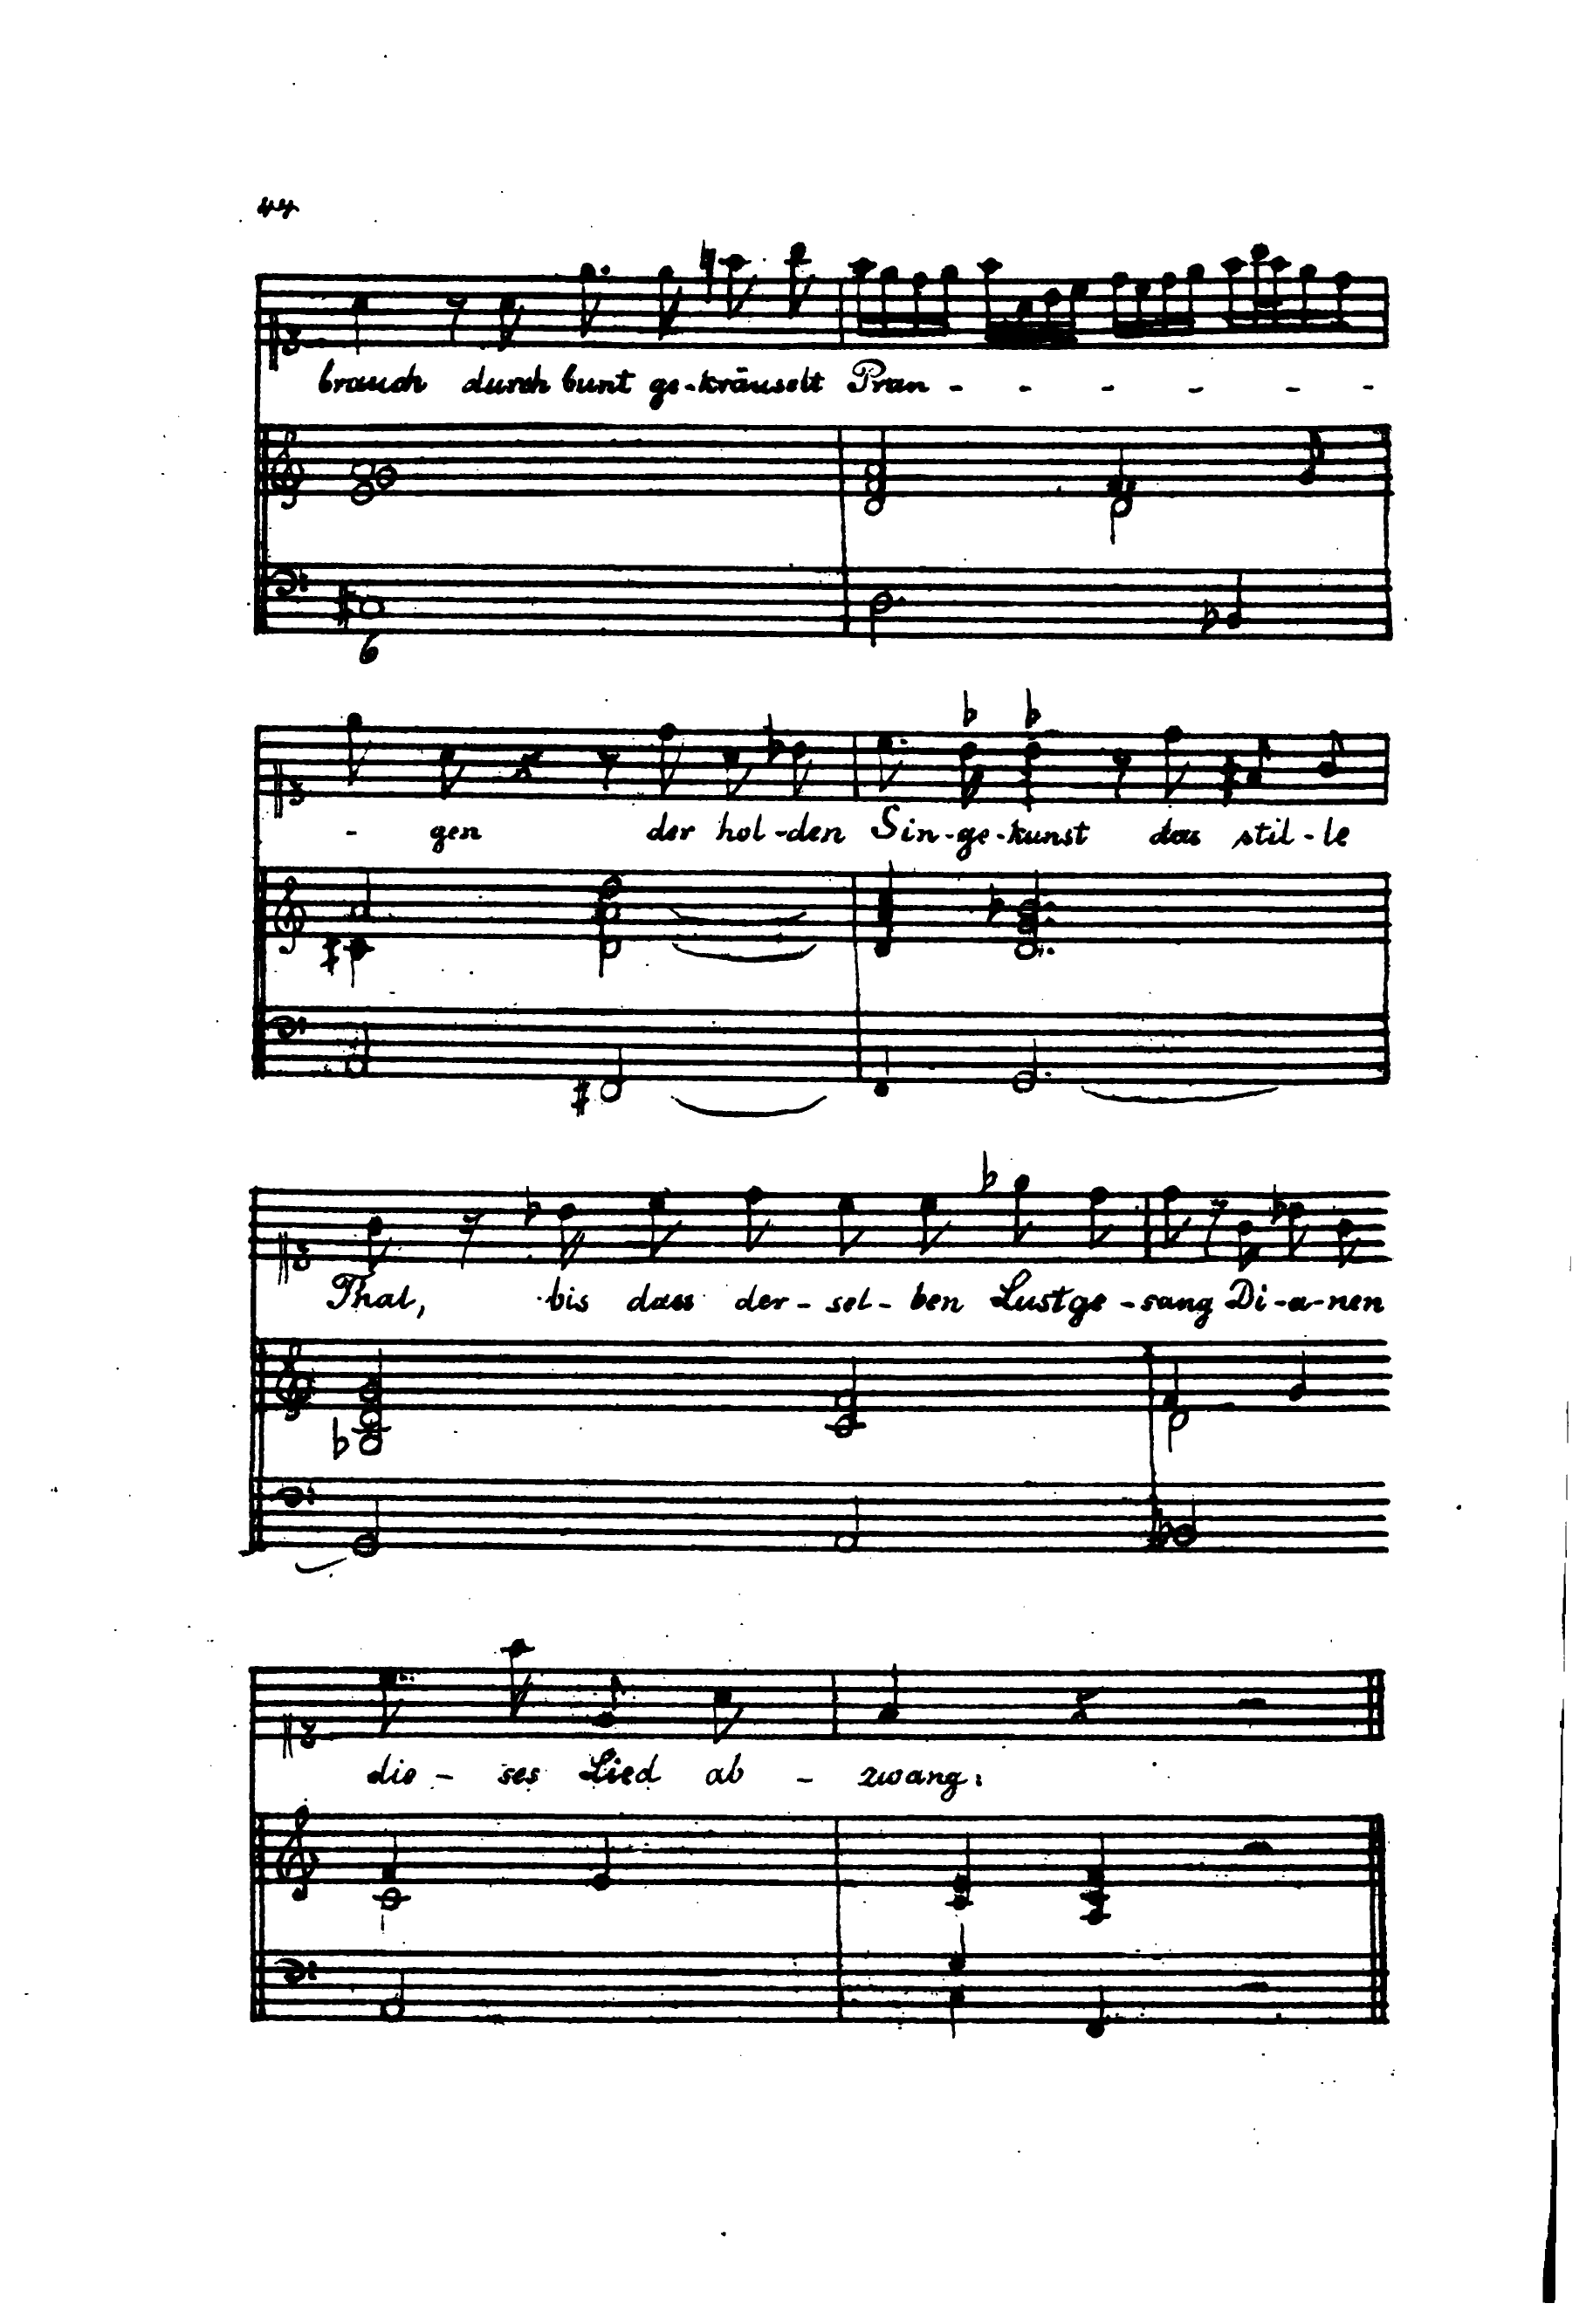 44
brauch durch bunt ge-kräuselt Pran - - - - - -
6
- gen der hol-den Sin-ge-kunst das stil-le
Thal, bis dass der-sel-ben Lustge-sang Di-a-nen
die-ses Lied ab-zwang: